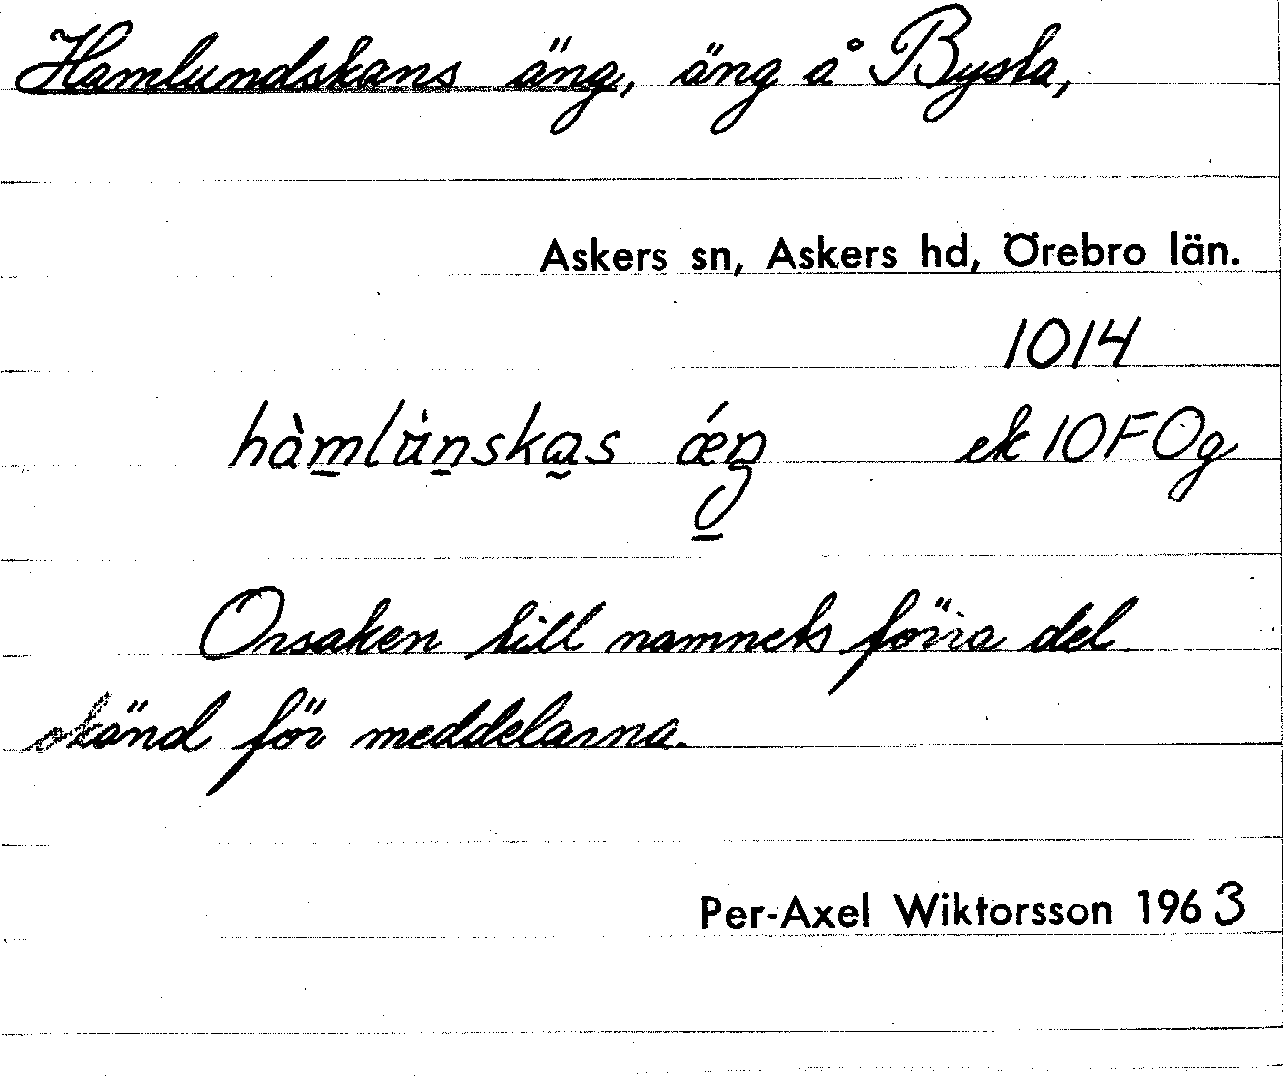 Hamlundskans äng, äng å Bysta,
Askers sn, Askers hd, Örebro län.
1014
hàm̲lùn̲ska̲s ǽŋ ek 10FOg
Orsaken till namnets förra del
okänd för meddelarna.
Per-Axel Wiktorsson 1963